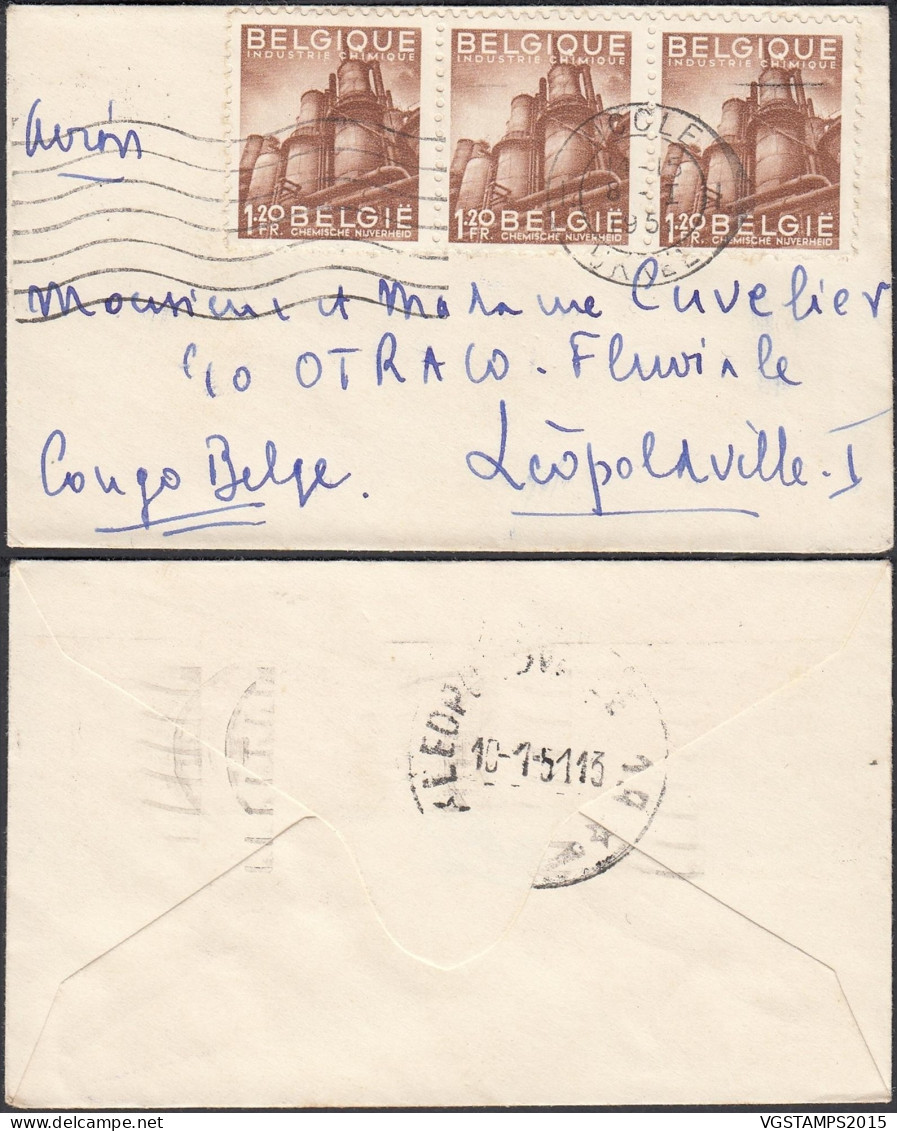 BELGIQUE BELGIQUE BELGIQUE
INDUSTRIE CHIMIQUE INDUSTRIE CHIMIQUE INDUSTRIE CHIMIQUE
1.20 FR. BELGIË 1.20 FR. BELGIË 1.20 FR. BELGIË
CHEMISCHE NIJVERHEID CHEMISCHE NIJVERHEID CHEMISCHE NIJVERHEID
CCLE
8 - I
195
Avión
Monsieur et Madame Cuvelier
c/o OTRACO - Fluviale
Congo Belge. Léopoldville-I
10-1-51 13
VGSTAMPS2015